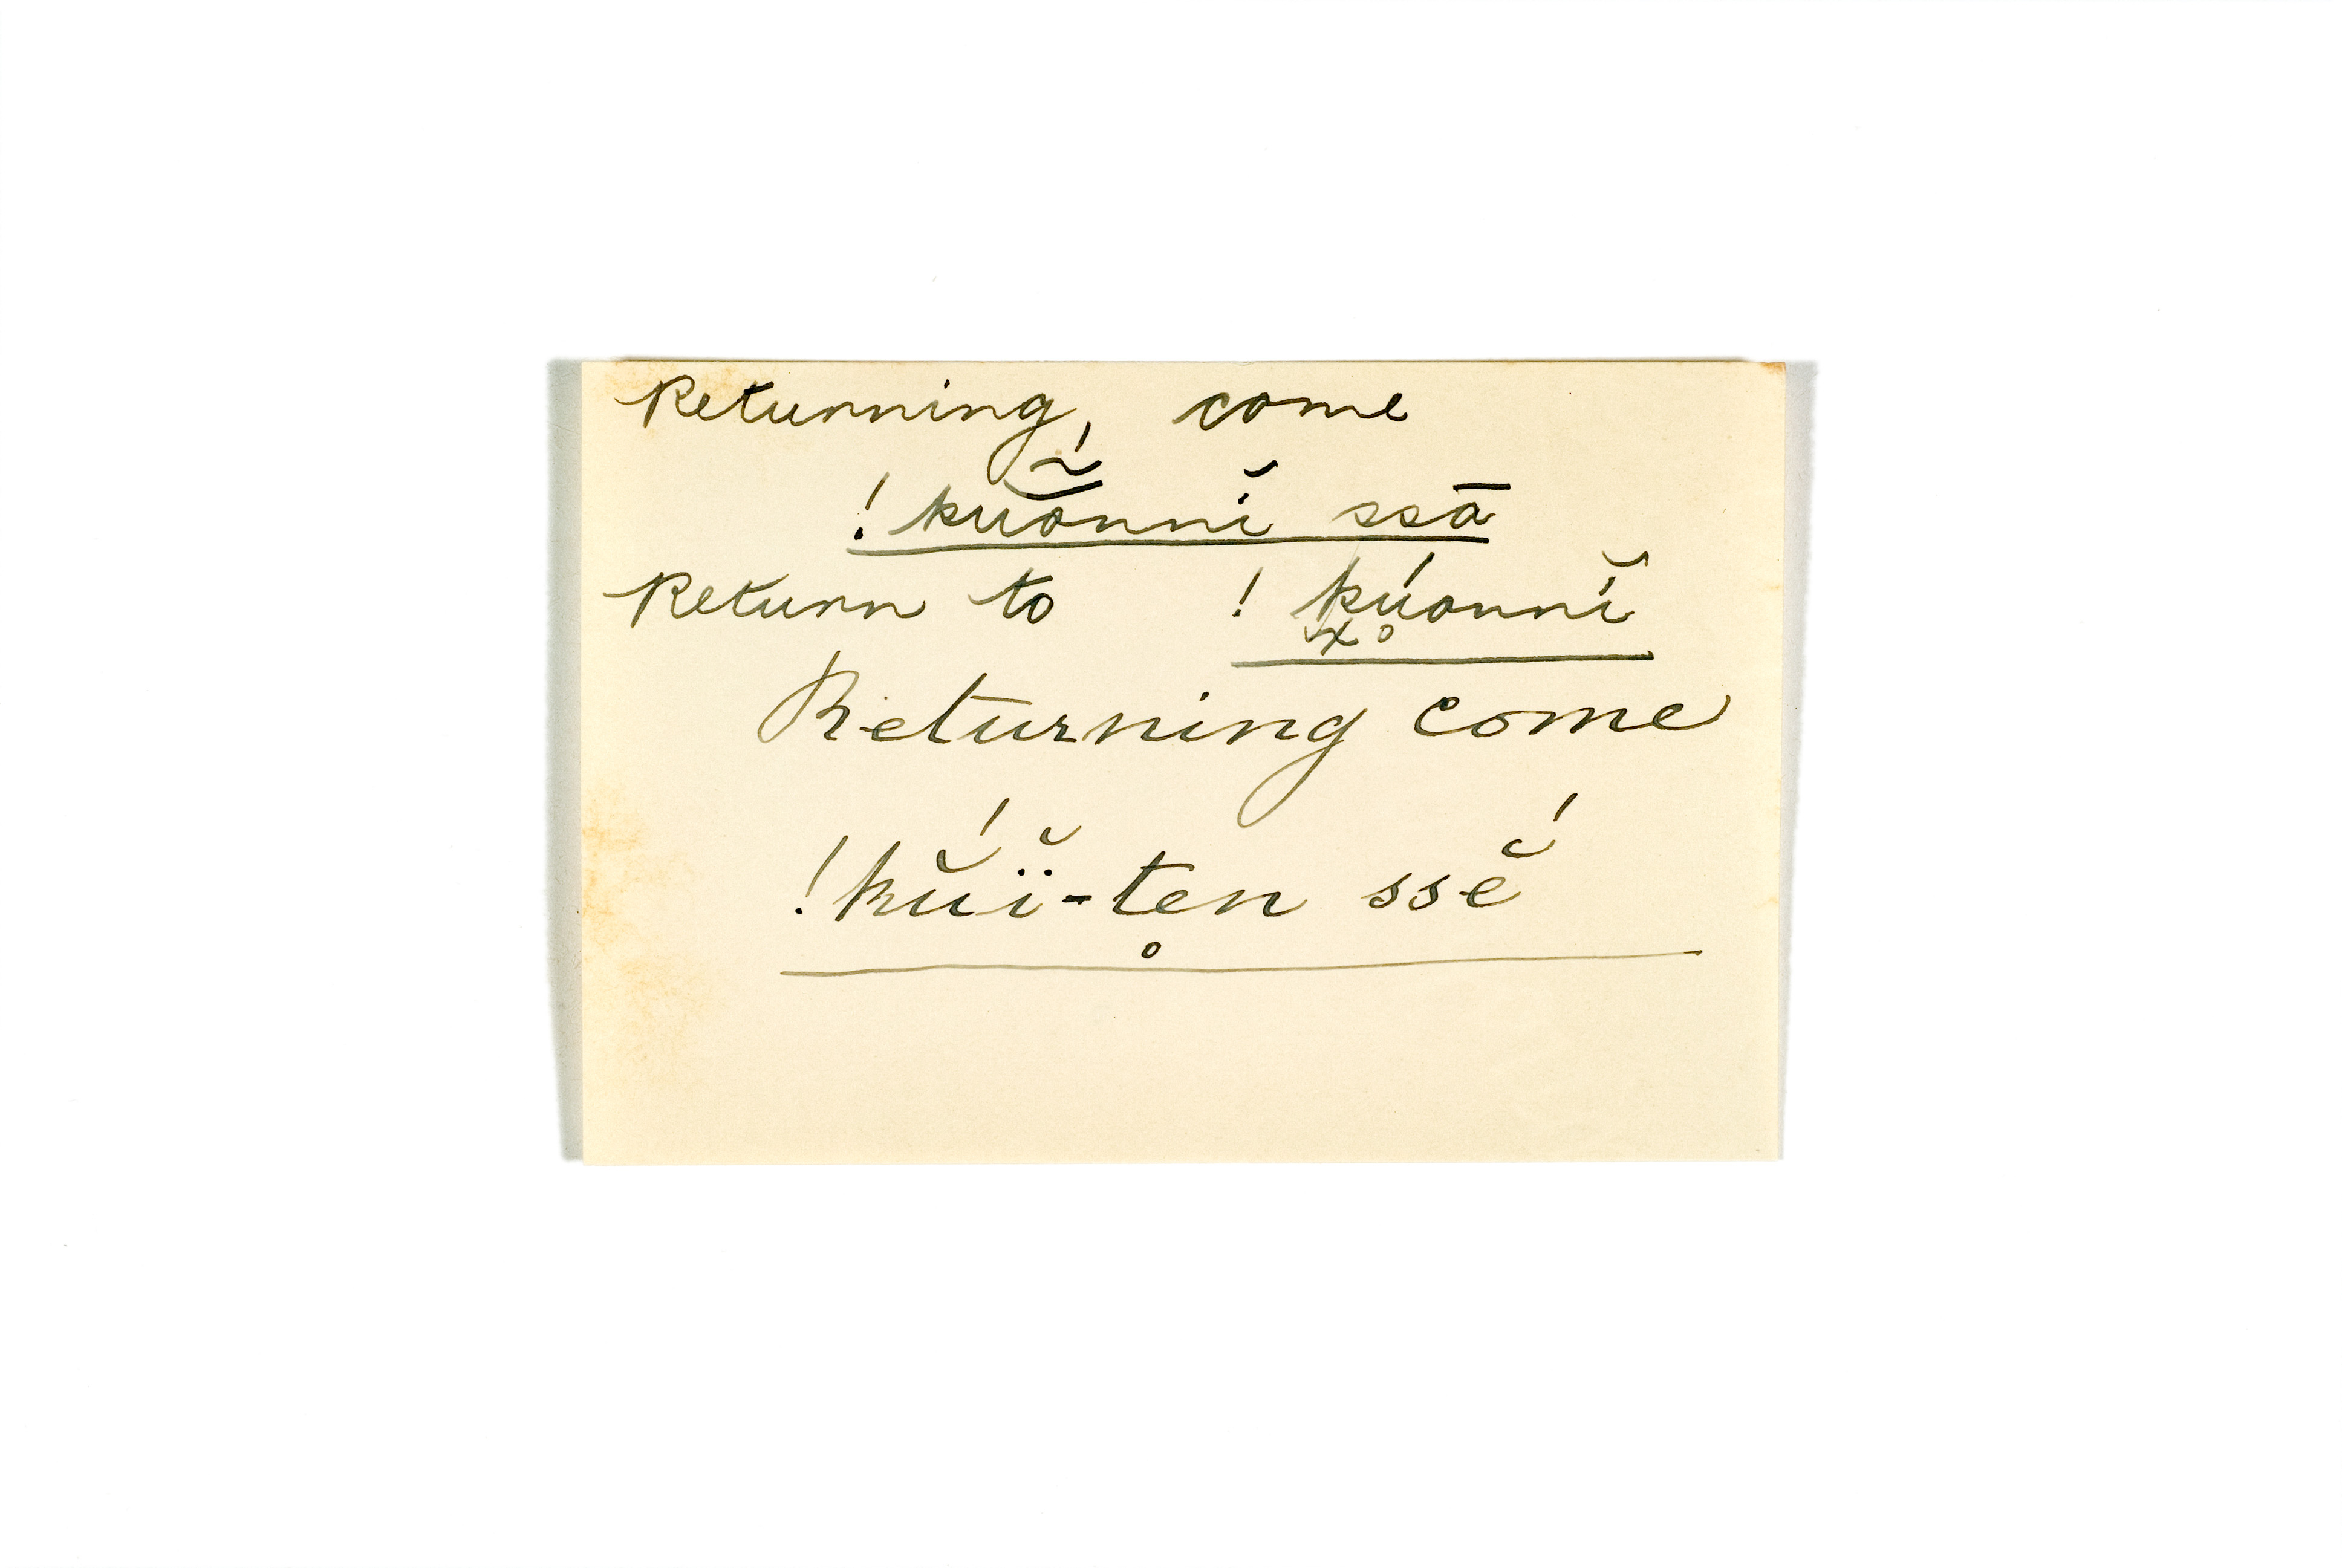 Returning, come
!kuõ̆́nnĭ ssā
Return to ! k͓ú̥onnĭ
Returning come
!kŭ́ï̆-te̥n ssĕ́